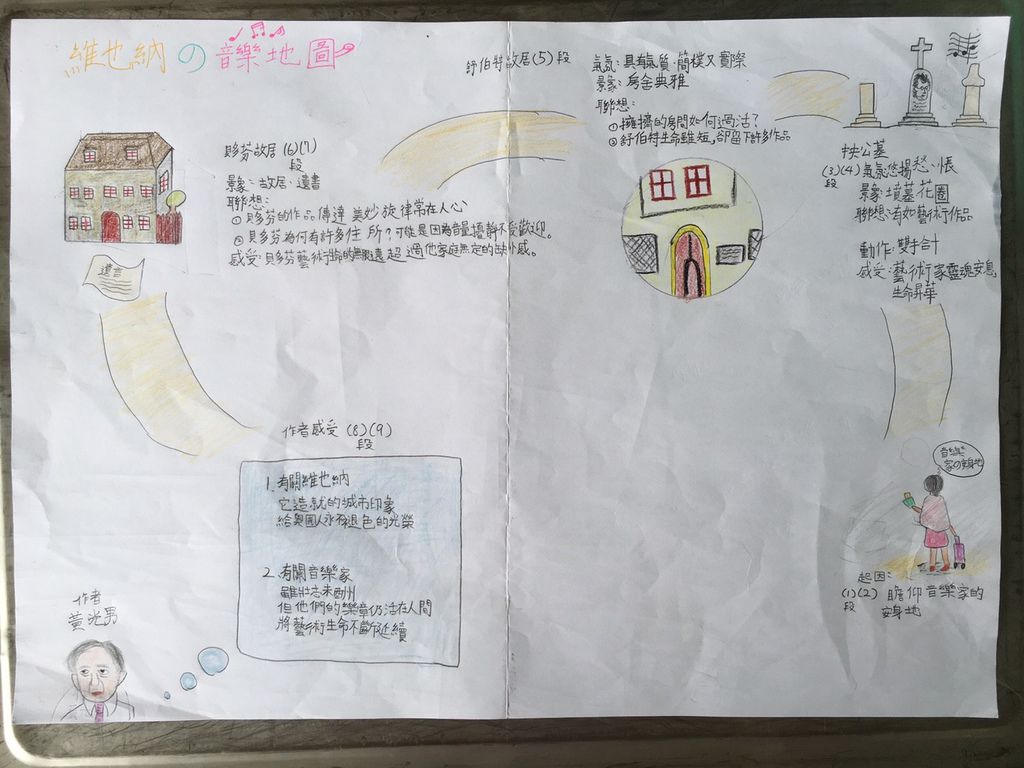 維也納の音樂地圖
舒伯特故居(5)段
氣氛:具有氣質、簡樸又實際
景象:房舍典雅
聯想:
①擁擠的房間如何過活?
②舒伯特生命雖短,卻留下許多作品
中央公墓
(3)(4)段
氣氛:悠揚、愁、悵
景象:墳墓、花園
聯想:有如藝術作品
動作:雙手合十
感受:藝術家靈魂安息
生命昇華
貝多芬故居(6)(7)
段
景象:故居、遺書
聯想:
①貝多芬的作品傳達美妙旋律常在人心
②貝多芬為何有許多住所?可能是因為音量擾靜不受歡迎。
感受:貝多芬藝術生命的無限遠超過他家庭無定的缺憾感。
遺言
作者感受(8)(9)
段
1.有關維也納
它造就的城市印象
給奧國人永不退色的光榮
2.有關音樂家
雖壯志未酬
但他們的樂音仍活在人間
將藝術生命不斷延續
作者
黃光男
音樂
家の安身地
起因:
(1)(2)段
瞻仰音樂家的
安身地